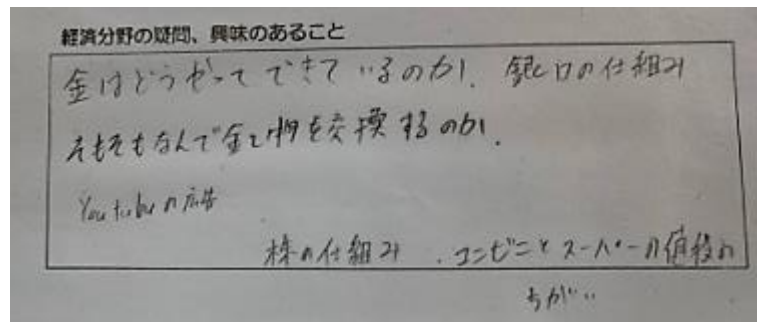 経済分野の疑問、興味のあること
金はどうやってできているのか、銀口の仕組み
そもそもなんで金と物を交換するのか、
Youtubeの広告
株の仕組み、コンビニとスーパーの値段の
ちがい